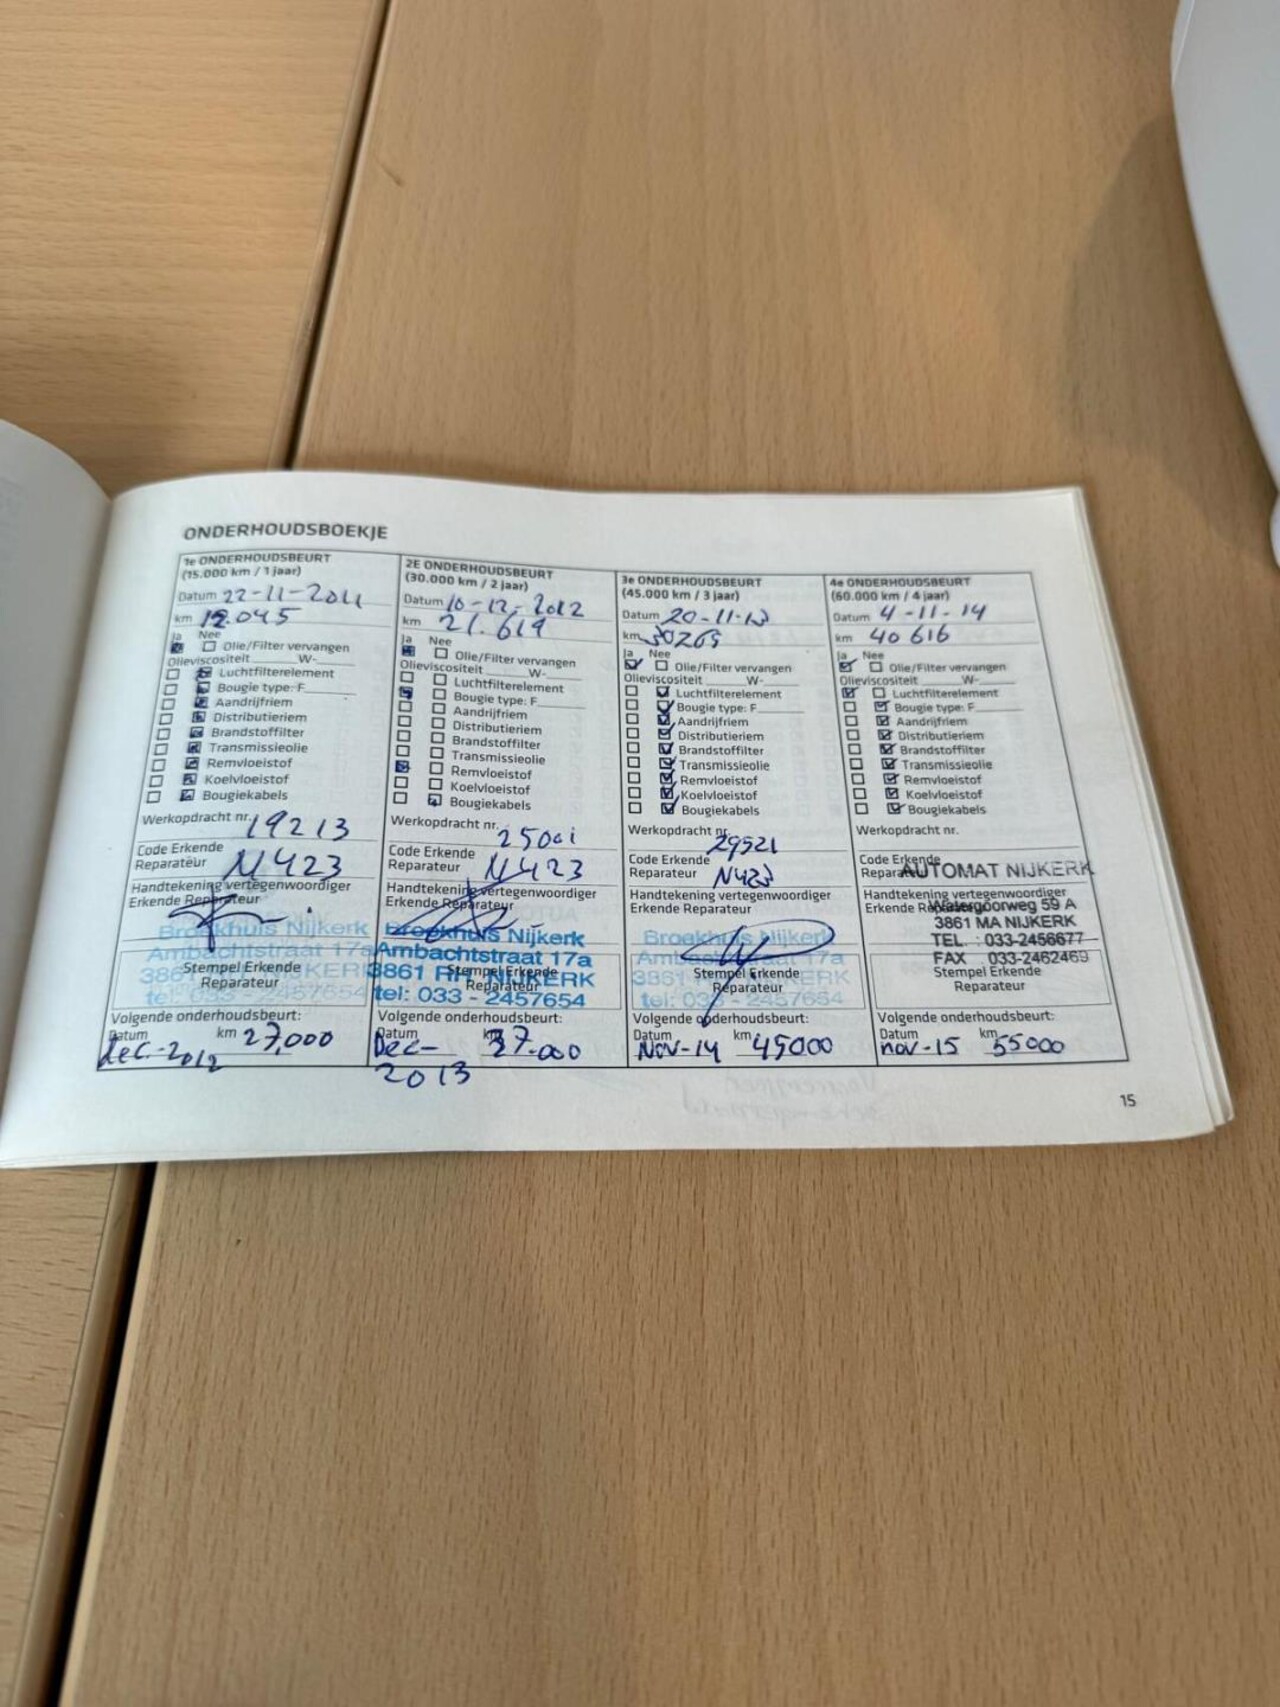 ONDERHOUDSBOEKJE
1e ONDERHOUDSBEURT
(15.000 km / 1 jaar)
Datum 22-11-2011
km 12.045
Ja Nee
Olie/Filter vervangen
Olieviscositeit W-
Luchtfilterelement
Bougie type: F
Aandrijfriem
Distributieriem
Brandstoffilter
Transmissieolie
Remvloeistof
Koelvloeistof
Bougiekabels
Werkopdracht nr. 19213
Code Erkende
Reparateur N423
Handtekening vertegenwoordiger
Erkende Reparateur
Broekhuis Nijkerk
Ambachtstraat 17a
3861 RH NIJKERK
Stempel Erkende
Reparateur
tel: 033 - 2457654
Volgende onderhoudsbeurt:
Datum km 27,000
dec.-2012
2E ONDERHOUDSBEURT
(30.000 km / 2 jaar)
Datum 10-12-2012
km 21.619
Ja Nee
Olie/Filter vervangen
Olieviscositeit W-
Luchtfilterelement
Bougie type: F
Aandrijfriem
Distributieriem
Brandstoffilter
Transmissieolie
Remvloeistof
Koelvloeistof
Bougiekabels
Werkopdracht nr.
Code Erkende
Reparateur N423
Handtekening vertegenwoordiger
Erkende Reparateur
Broekhuis Nijkerk
Ambachtstraat 17a
3861 RH NIJKERK
Stempel Erkende
Reparateur
tel: 033 - 2457654
Volgende onderhoudsbeurt:
Datum km 37.000
Dec-
2013
3e ONDERHOUDSBEURT
(45.000 km / 3 jaar)
Datum 20-11-13
km 30269
Ja Nee
Olie/Filter vervangen
Olieviscositeit W-
Luchtfilterelement
Bougie type: F
Aandrijfriem
Distributieriem
Brandstoffilter
Transmissieolie
Remvloeistof
Koelvloeistof
Bougiekabels
Werkopdracht nr. 29521
Code Erkende
Reparateur N423
Handtekening vertegenwoordiger
Erkende Reparateur
Broekhuis Nijkerk
Ambachtstraat 17a
3861 RH NIJKERK
Stempel Erkende
Reparateur
tel: 033 - 2457654
Volgende onderhoudsbeurt:
Datum km 45000
Nov-14
4e ONDERHOUDSBEURT
(60.000 km / 4 jaar)
Datum 4-11-14
km 40616
Ja Nee
Olie/Filter vervangen
Olieviscositeit W-
Luchtfilterelement
Bougie type: F
Aandrijfriem
Distributieriem
Brandstoffilter
Transmissieolie
Remvloeistof
Koelvloeistof
Bougiekabels
Werkopdracht nr.
Code Erkende
Reparateur
AUTOMAT NIJKERK
Handtekening vertegenwoordiger
Erkende Reparateur
Watergoorweg 59 A
3861 MA NIJKERK
TEL. : 033-2456677
FAX 033-2462469
Stempel Erkende
Reparateur
Volgende onderhoudsbeurt:
Datum km
nov-15 55000
15